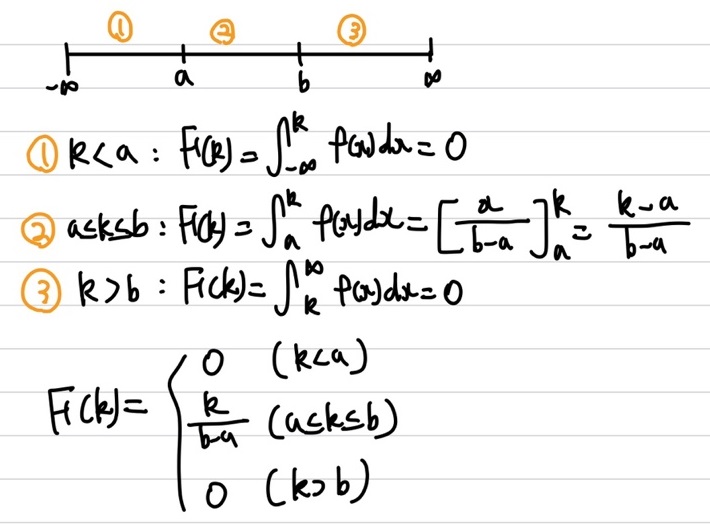 ① ② ③
-∞ a b ∞
① k<a : F(k) = ∫_{-∞}^{k} f(x)dx = 0
② a≤k≤b : F(k) = ∫_{a}^{k} f(x)dx = [x/(b-a)]_{a}^{k} = (k-a)/(b-a)
③ k>b : F(k) = ∫_{k}^{∞} f(x)dx = 0
0 (k<a)
F(k) = { k/(b-a) (a≤k≤b)
0 (k>b)